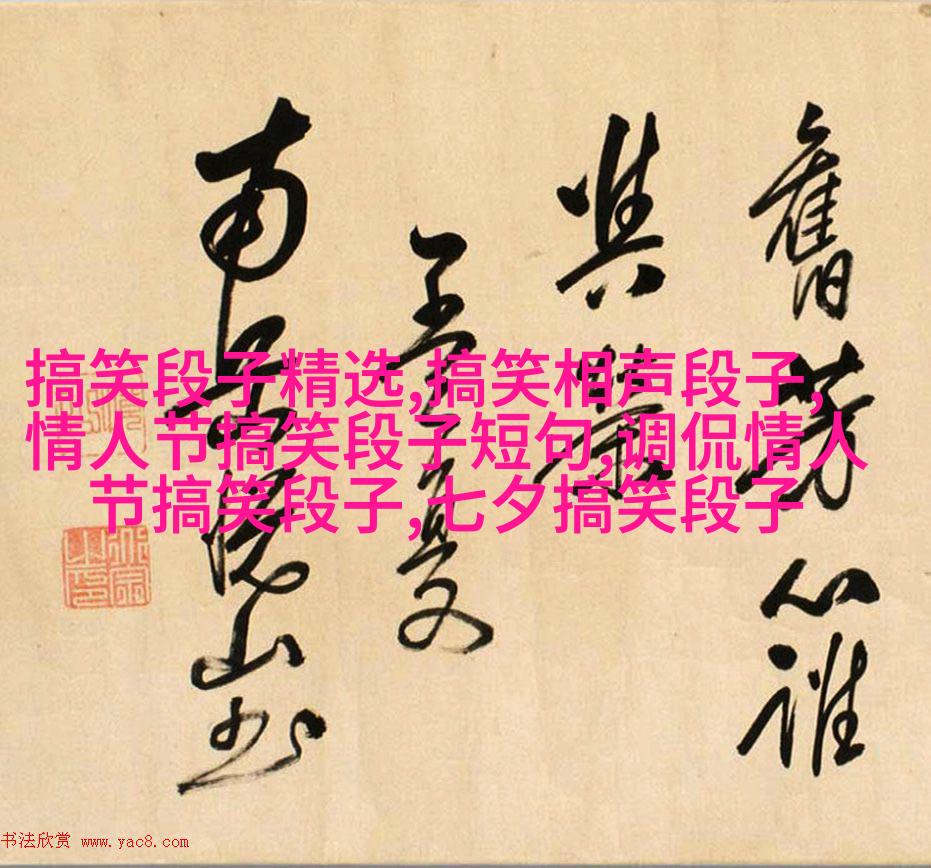 搞笑段子精选,搞笑相声段子,
情人节搞笑段子短句,调侃情人
节搞笑段子,七夕搞笑段子
舊芳心誰
與
夏
南 山
书法欣赏 www.yac8.com